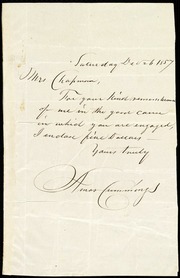 Saturday Dec 26 1857
Mrs Chapman,
For your kind remembrance
of me in the good cause
in which you are engaged,
I enclose five Dollars
Yours truly
Amos Cummings